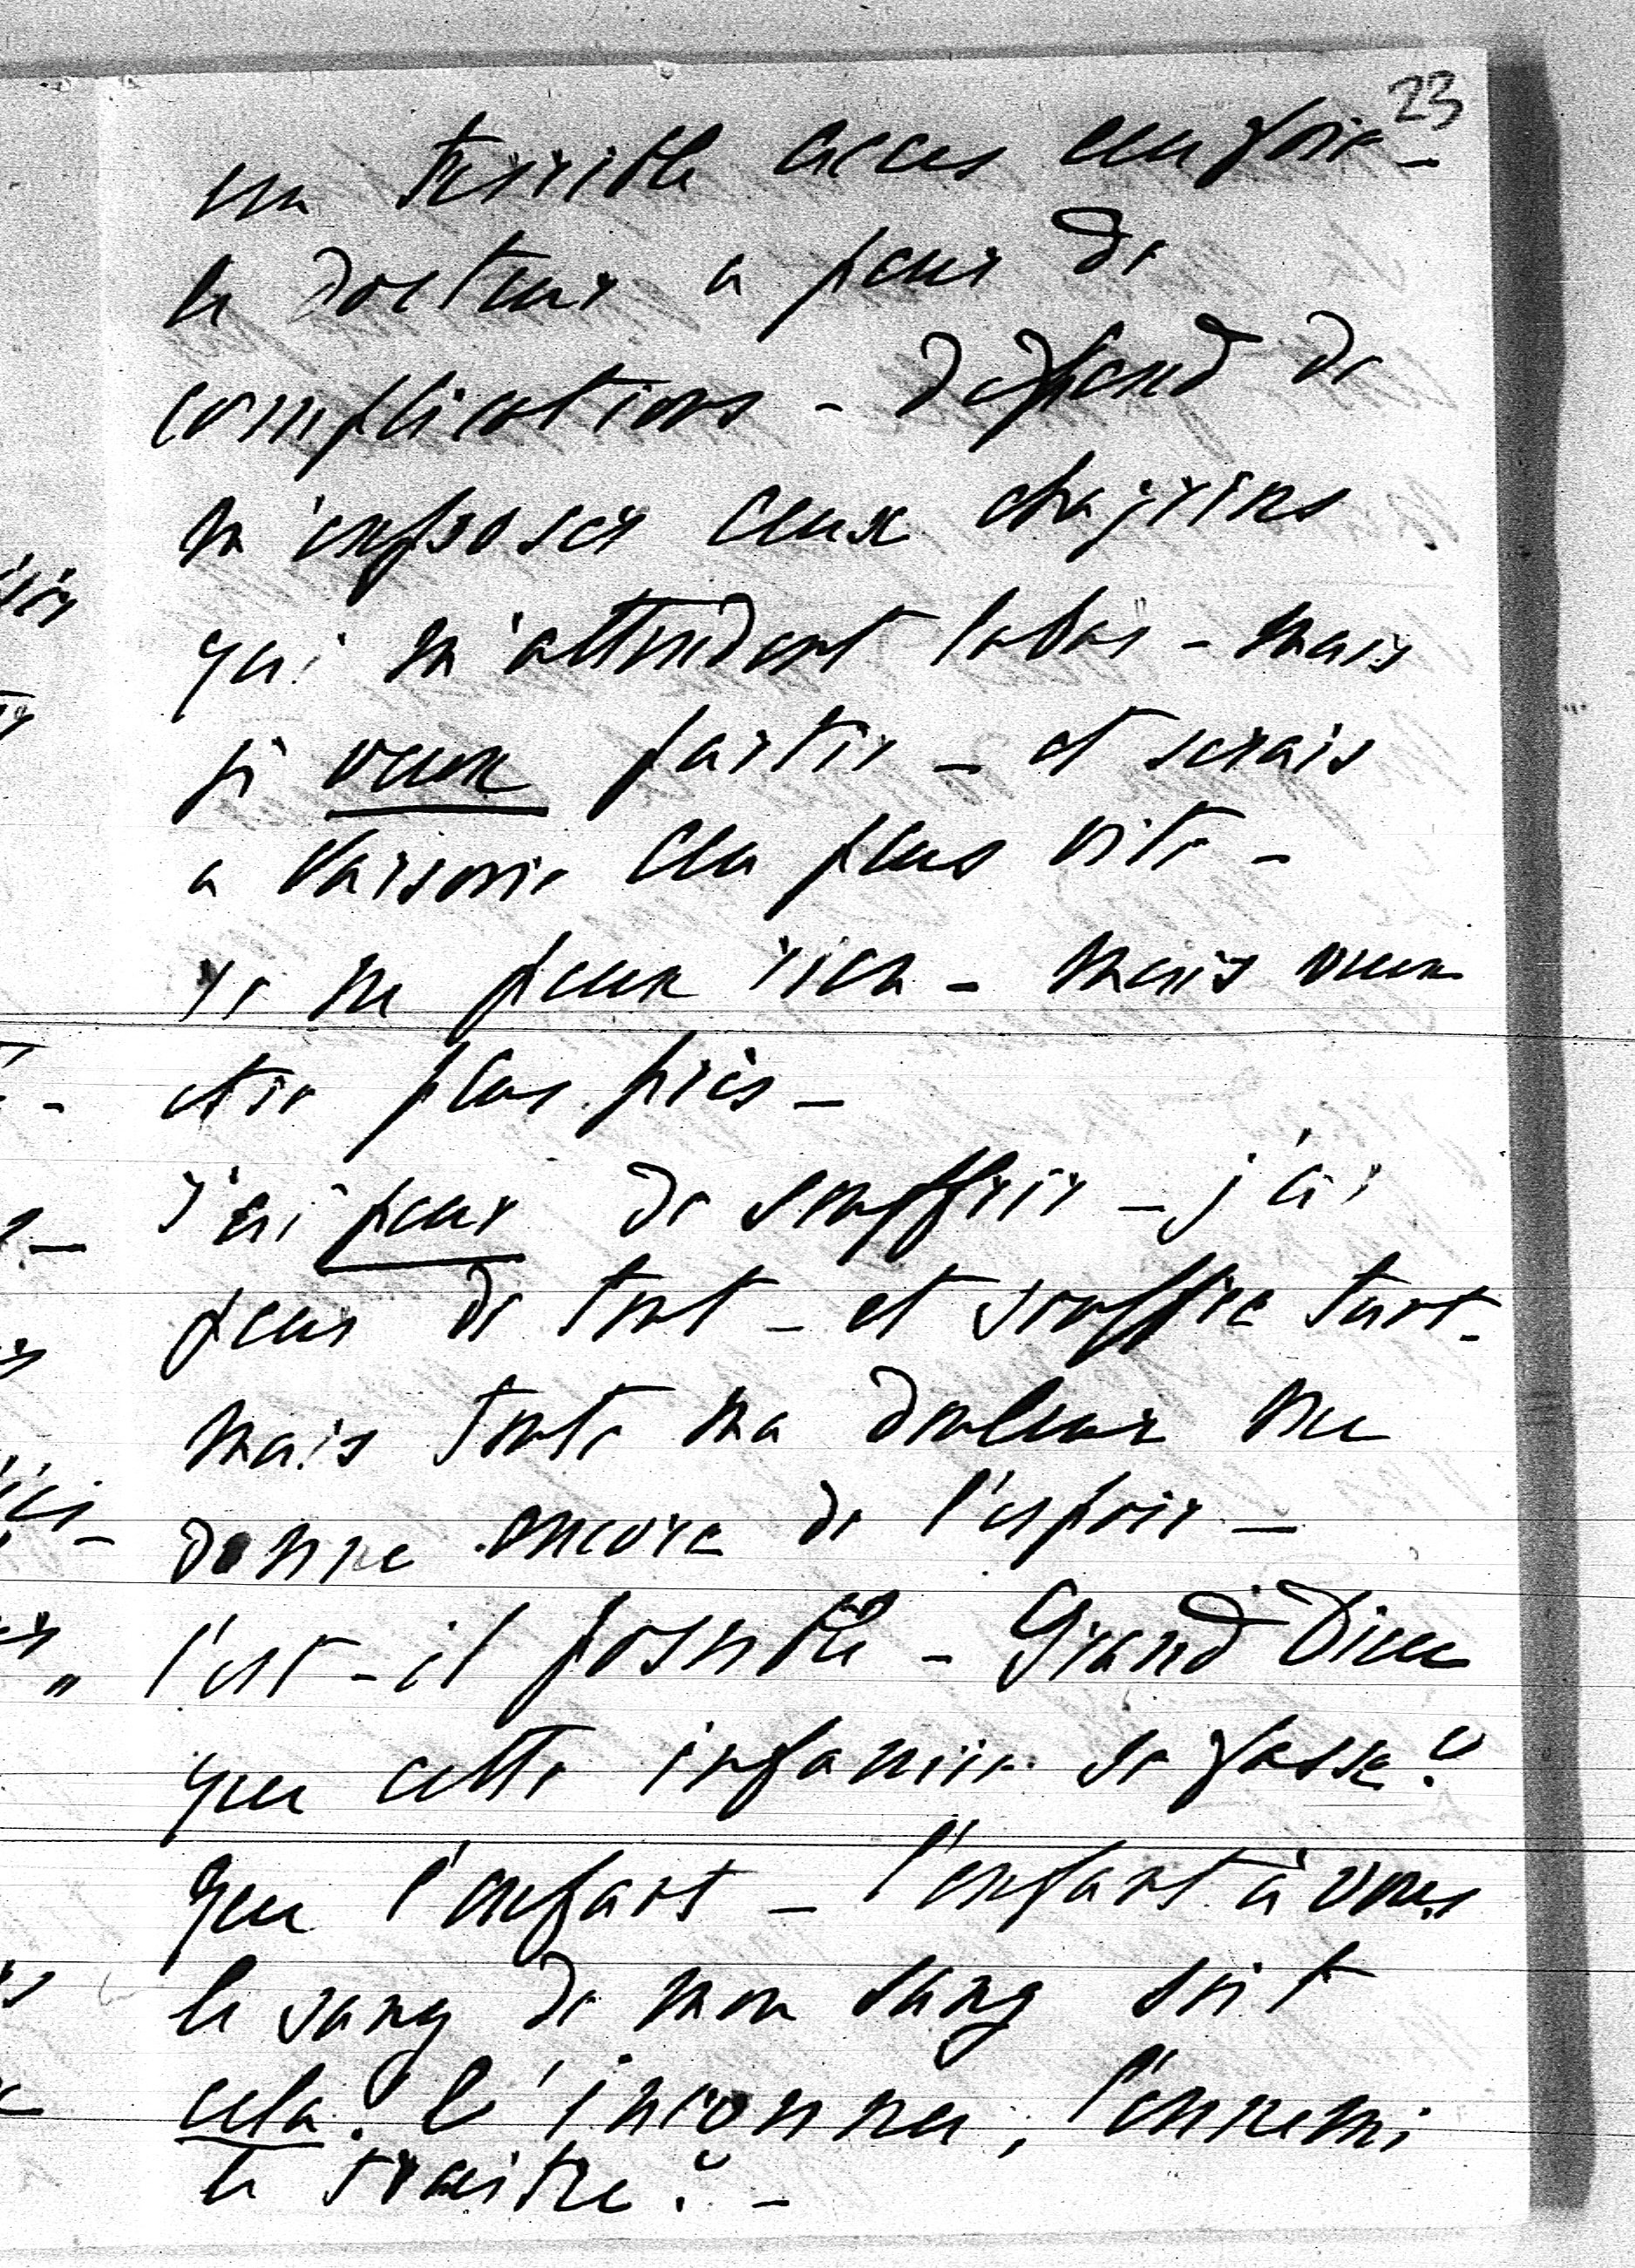 23
un terrible acces au foie -
le docteur a peur de
complications - defend de
m'exposer aux chagrins
qui m'attendent labas - mais
je veux partir - et serais
a Varsovie au plus vite -
Je ne peux rien - mais veux
etre plus près -
J'ai peur de souffrir - j'ai
peur de tout - et souffre tant -
mais toute ma douleur me
donne encore de l'espoir -
l'est-il possible - Grand Dieu
que cette infamie se fasse?
Que l'enfant - l'enfant à vous
le sang de mon sang soit
cela. l'inconnu, l'ennemi
le traitre? -